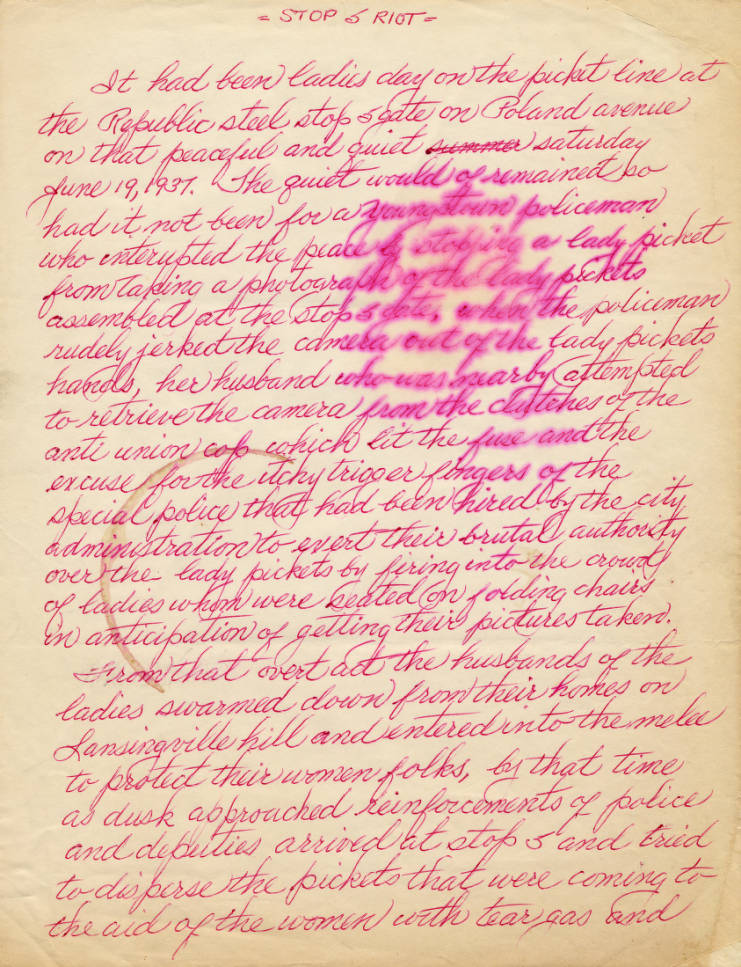 = STOP 5 RIOT =
It had been ladies day on the picket line at
the Republic steel stop 5 gate on Poland avenue
on that peaceful and quiet summer saturday
June 19, 1937. The quiet would of remained so
had it not been for a youngstown policeman
who interupted the peace by stopping a lady picket
from taking a photograph of the lady pickets
assembled at the stop 5 gate, when the policeman
rudely jerked the camera out of the lady pickets
hands, her husband who was nearby attempted
to retrieve the camera from the clutches of the
anti union cop which lit the fuse and the
excuse for the itchy trigger fingers of the
special police that had been hired by the city
administration to exert their brutal authority
over the lady pickets by firing into the crowd
of ladies whom were seated on folding chairs
in anticipation of getting their pictures taken.
From that overt act the husbands of the
ladies swarmed down from their homes on
Lansingville hill and entered into the melee
to protect their women folks, by that time
as dusk approached reinforcements of police
and deputies arrived at stop 5 and tried
to disperse the pickets that were coming to
the aid of the women with tear gas and